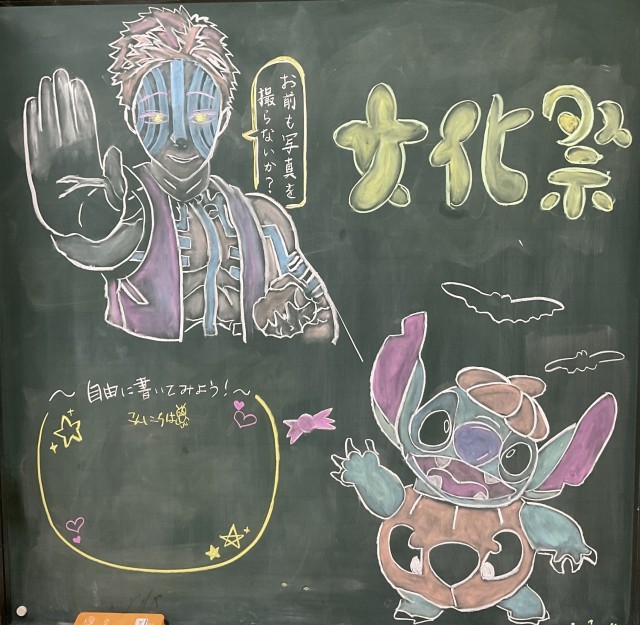 お前も写真を
撮らないか?
文化祭
~自由に書いてみよう!~
こんにちは